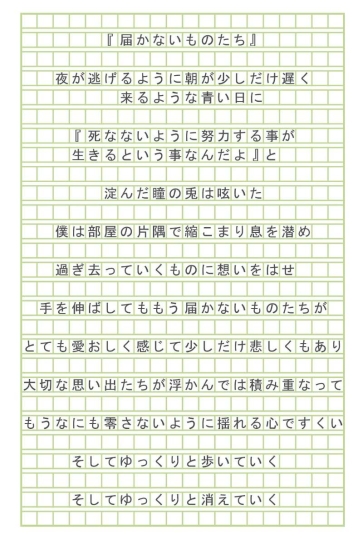 『届かないものたち』
夜が逃げるように朝が少しだけ遅く
来るような青い日に
『死なないように努力する事が
生きるという事なんだよ』と
淀んだ瞳の兎は呟いた
僕は部屋の片隅で縮こまり息を潜め
過ぎ去っていくものに想いをはせ
手を伸ばしてももう届かないものたちが
とても愛おしく感じて少しだけ悲しくもあり
大切な思い出たちが浮かんでは積み重なって
もうなにも零さないように揺れる心ですくい
そしてゆっくりと歩いていく
そしてゆっくりと消えていく